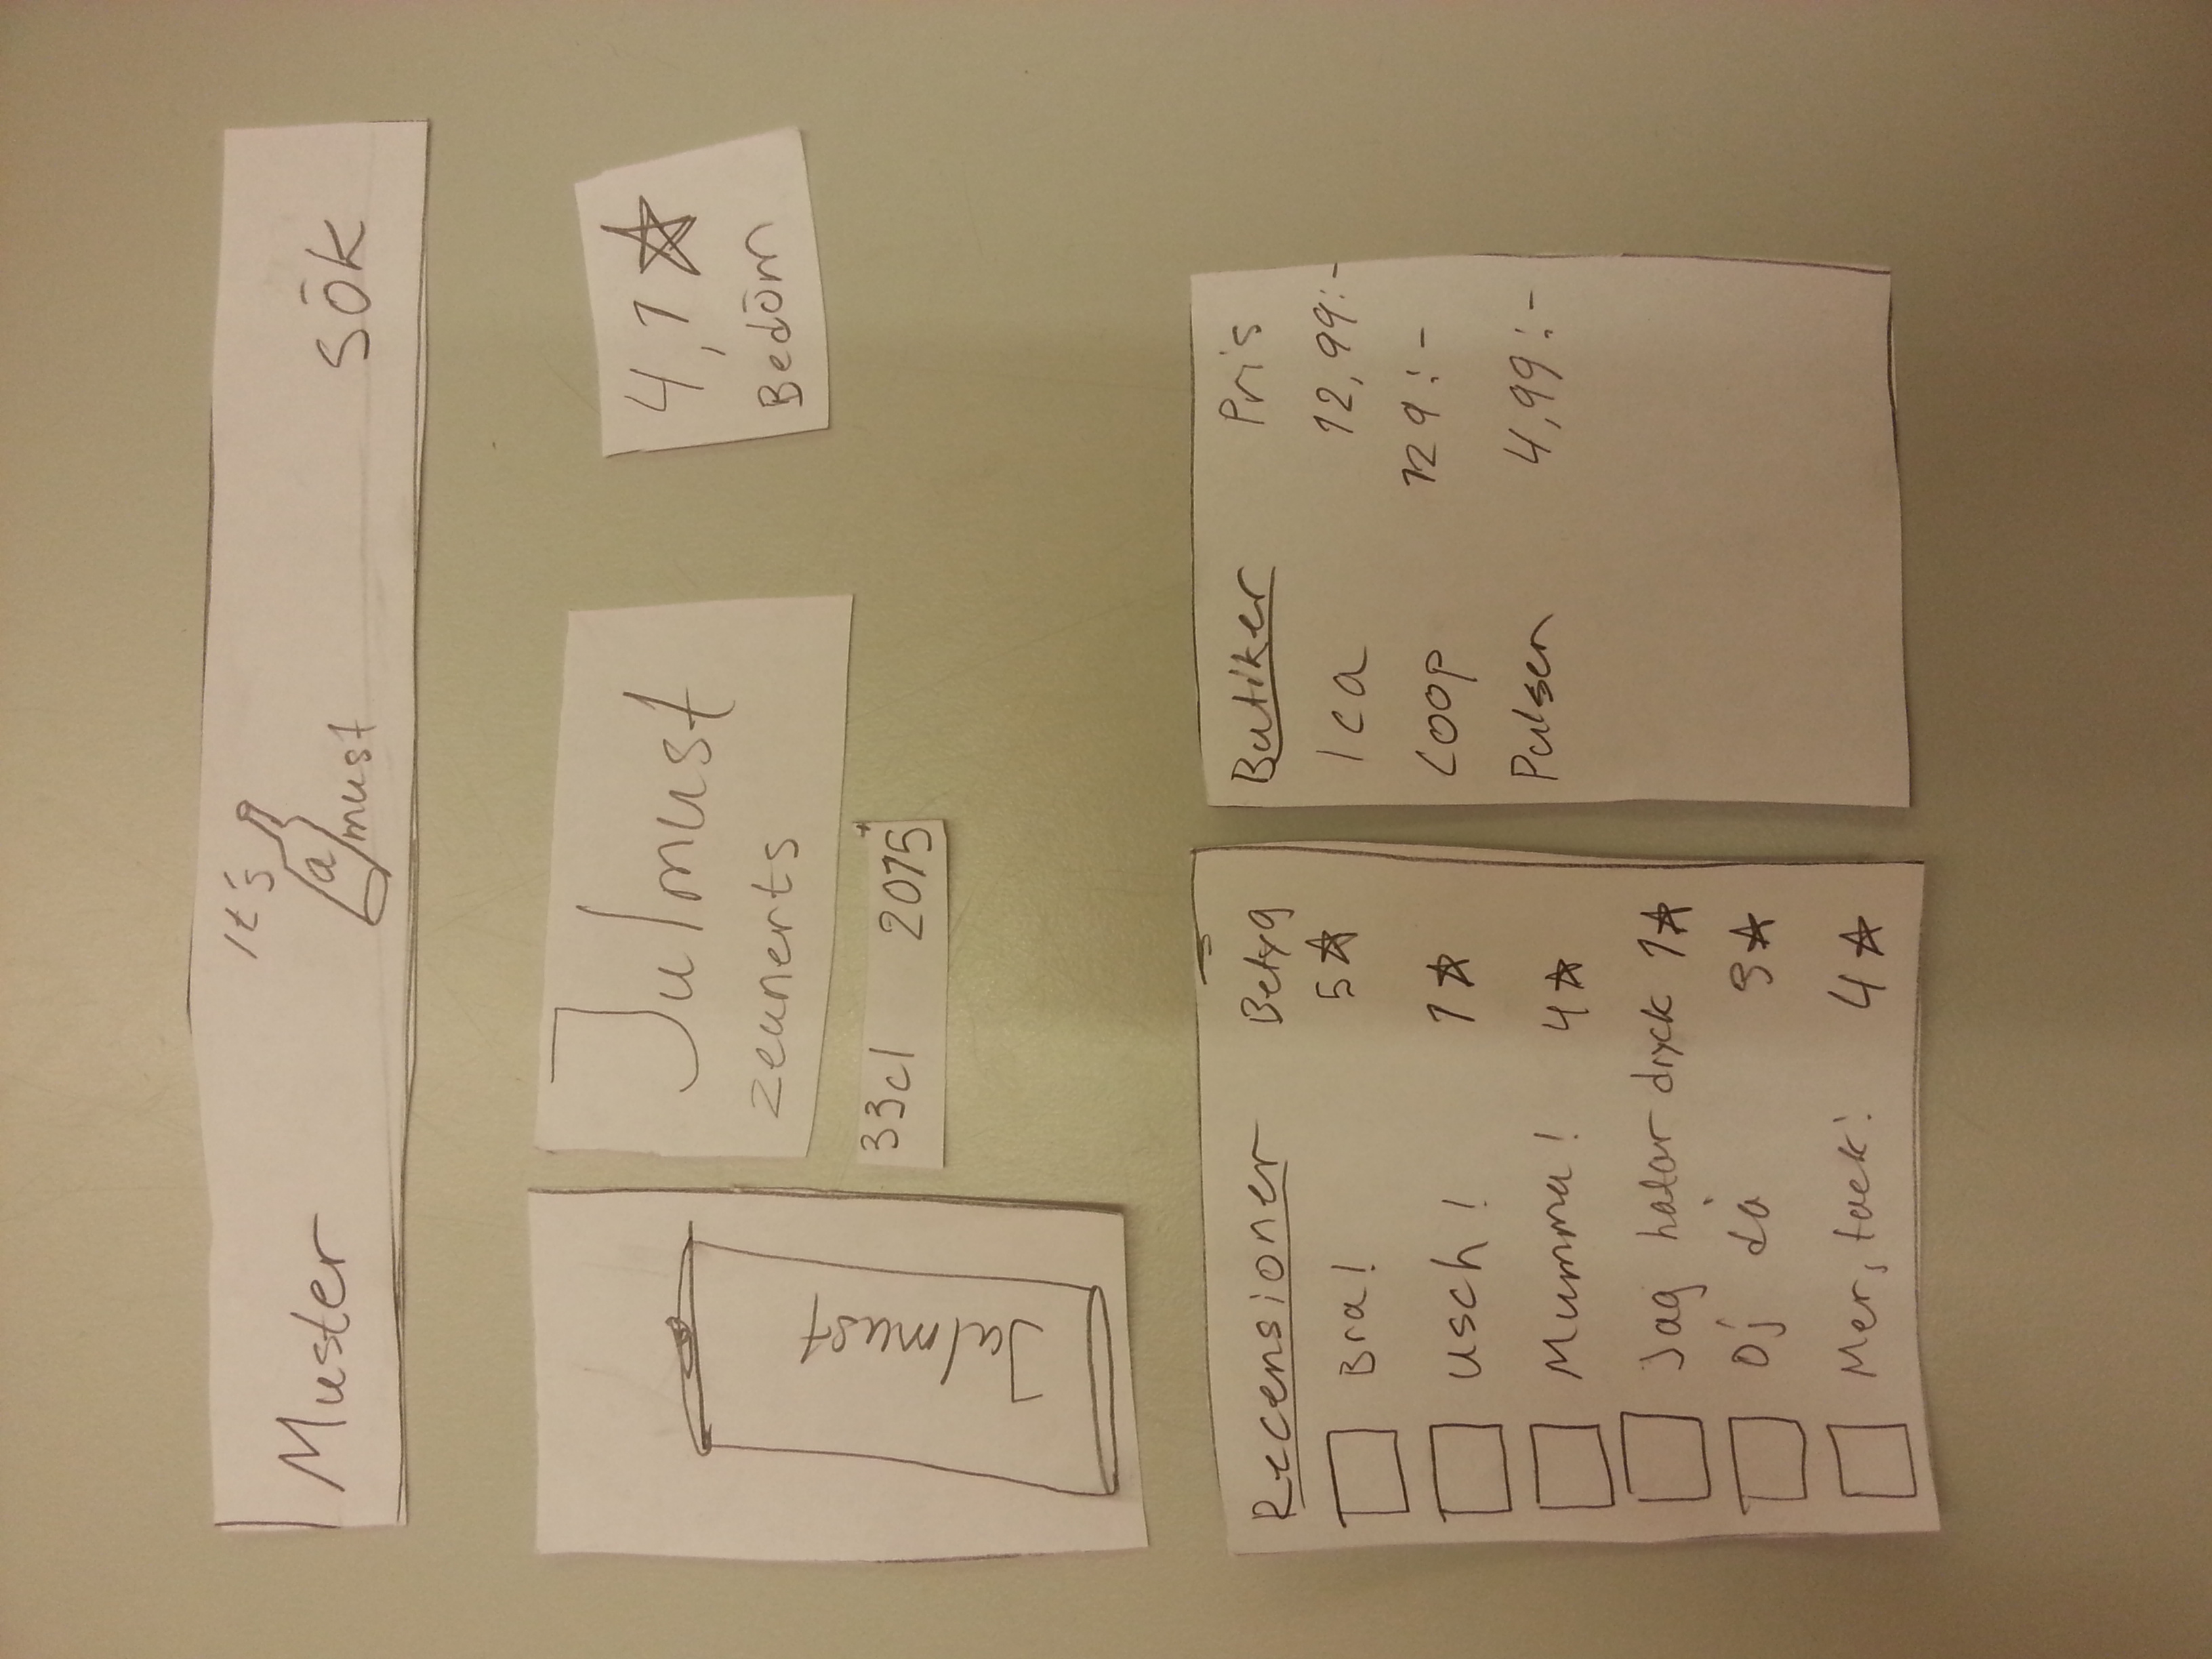 Muster It's a must SÖK
Julmust
Julmust
zeunerts
4,1
Bedöm
33cl 2015*
Recensioner Betyg
Bra! 5
usch! 1
Mumma! 4
Jag hatar dryck 1
Oj då 3
Mer, tack! 4
Butiker Pris
Ica 12,99:-
Coop 129:-
Pulsen 4,99:-